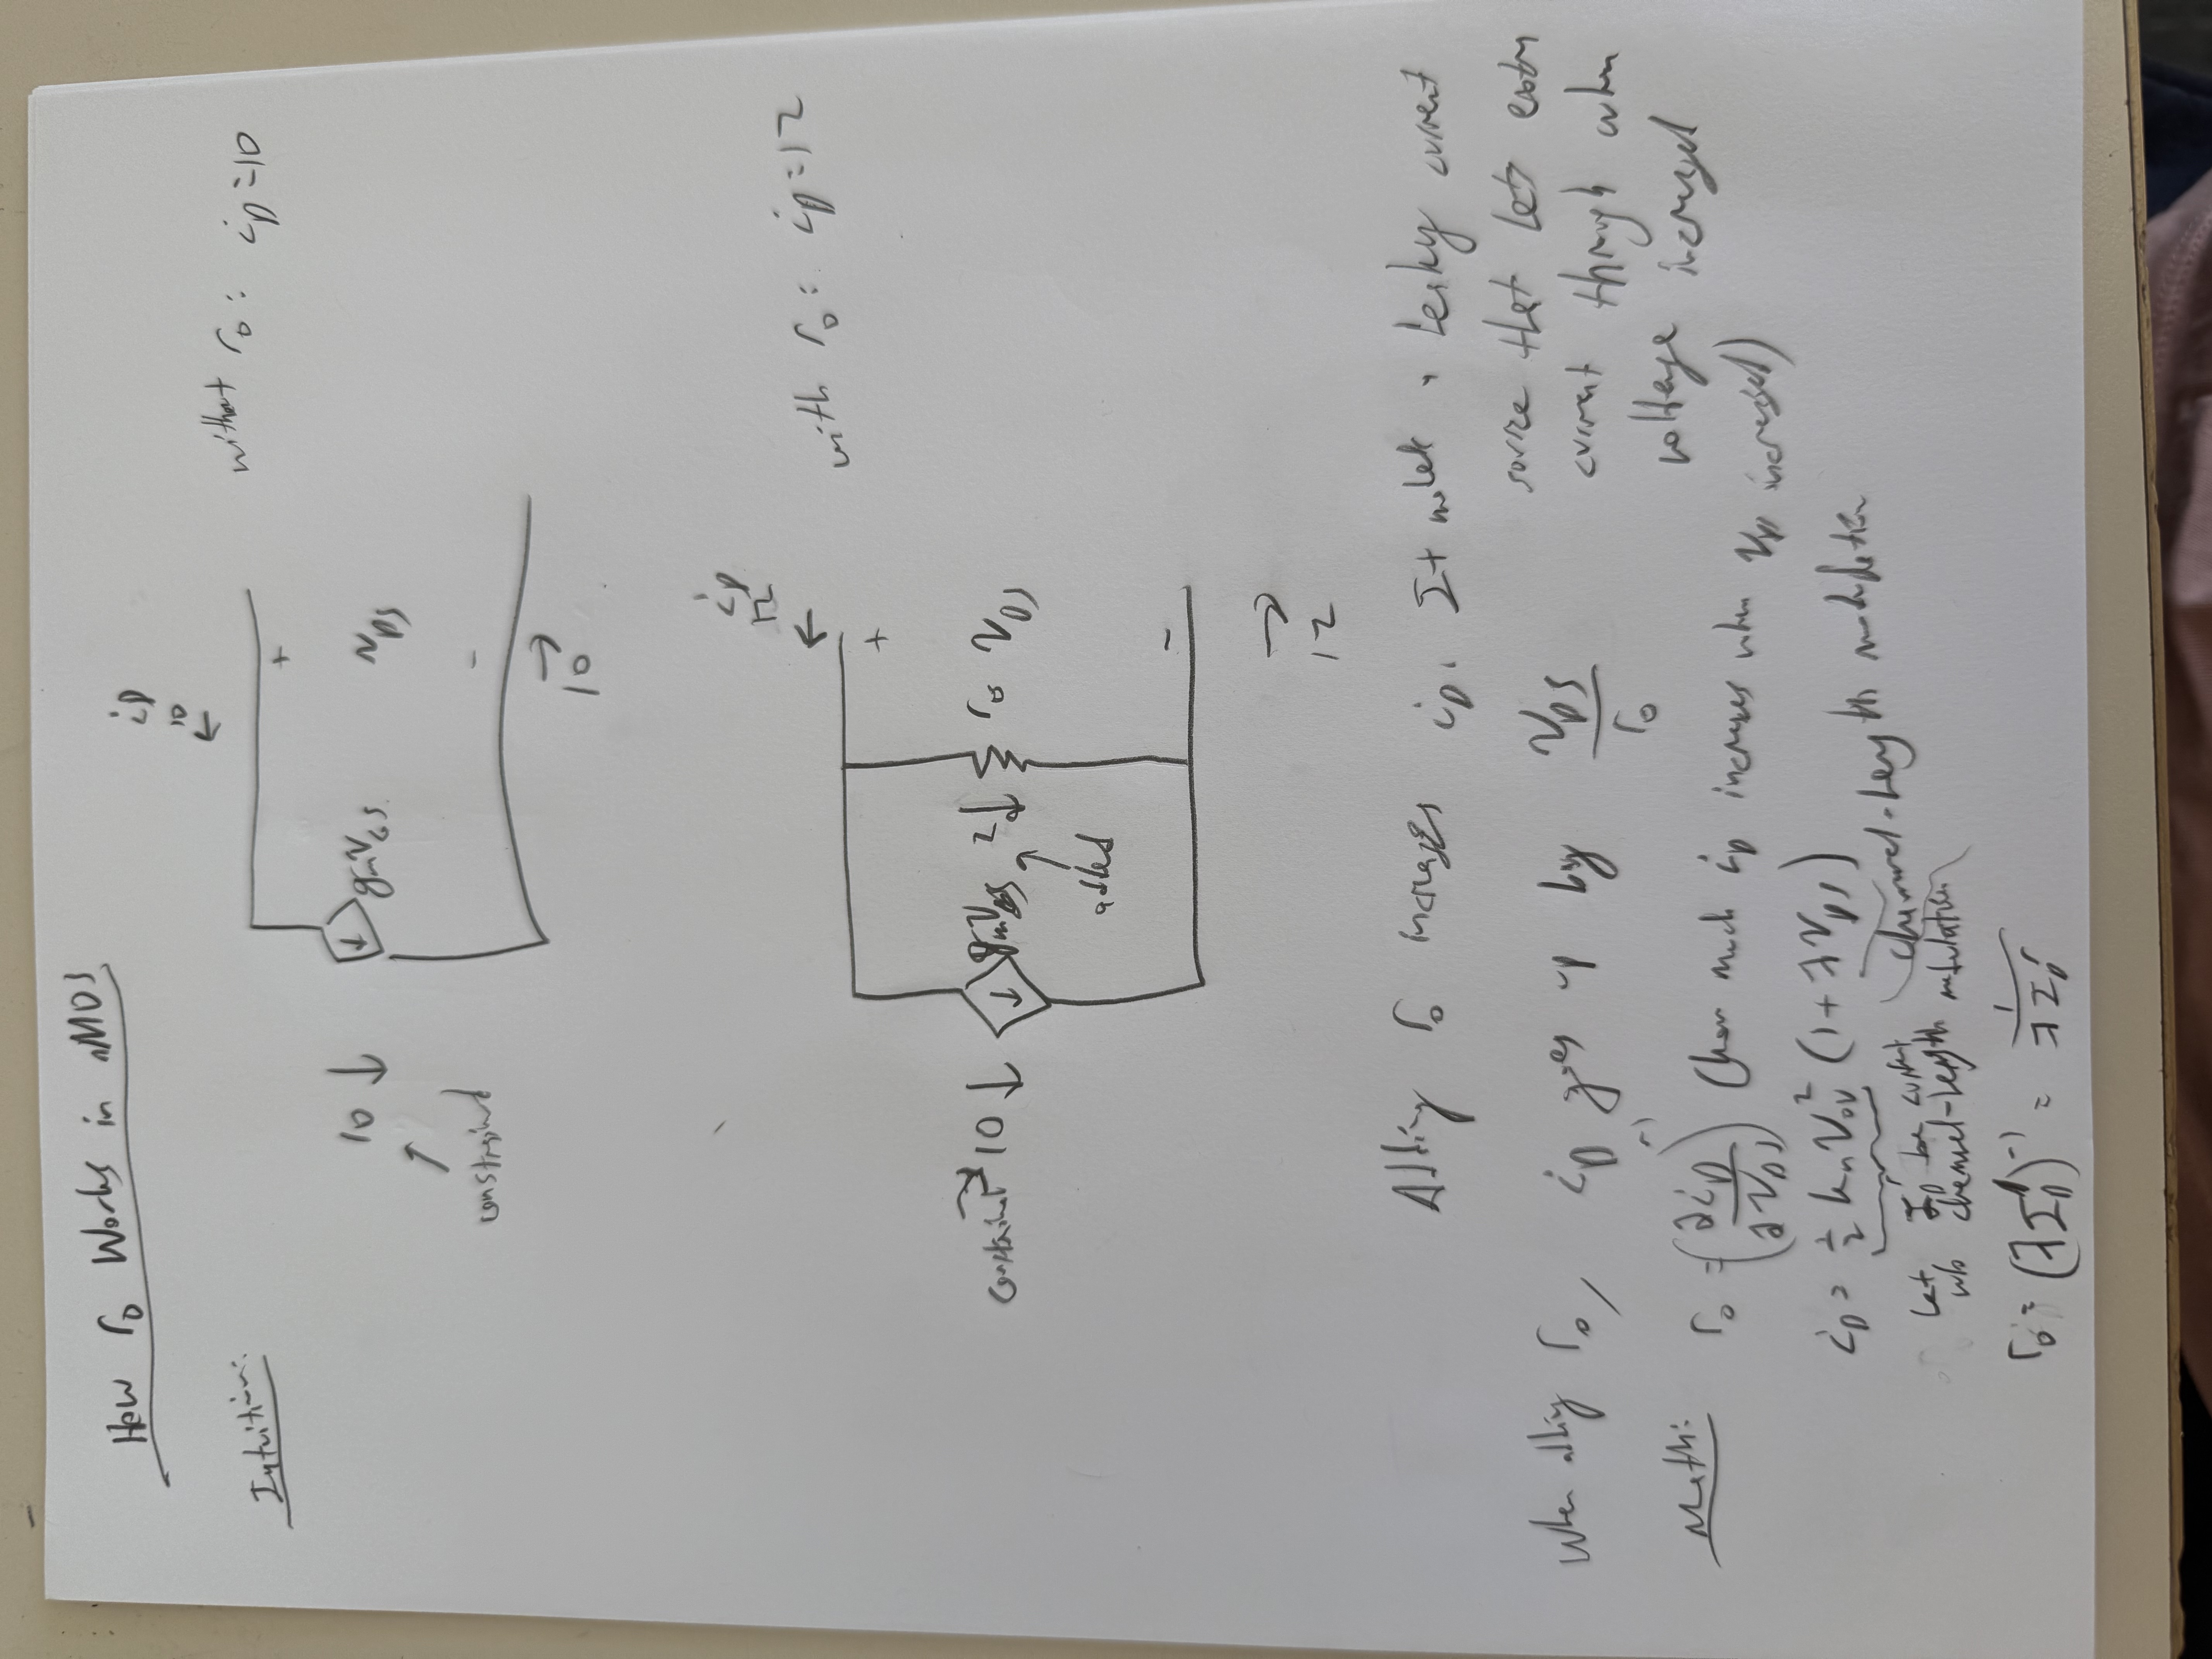 How r₀ Works in nMOS
Intuition:
without r₀: i_D = 10
i_D
10
←
10 ↓
↑
constrained
g_m V_GS
+
v_DS
-
→
10
with r₀: i_D = 12
i_D
12
←
constrained → 10 ↓
g_m V_GS
2 ↓
↑
added
r₀
+
V_DS
-
→
12
Adding r₀ increases i_D. It makes a leaky current
source that lets extra
current through when
voltage increased
When adding r₀, i_D goes up by V_DS / r₀
Math: r₀ = (∂i_D / ∂V_DS)⁻¹ (how much i_D increases when V_D increased)
i_D = ½ k_n V_OV² (1 + λV_DS)
channel-length modulation
Let I_D' be current
w/o channel-length modulation
r₀ = (λI_D')⁻¹ = 1 / λI_D'